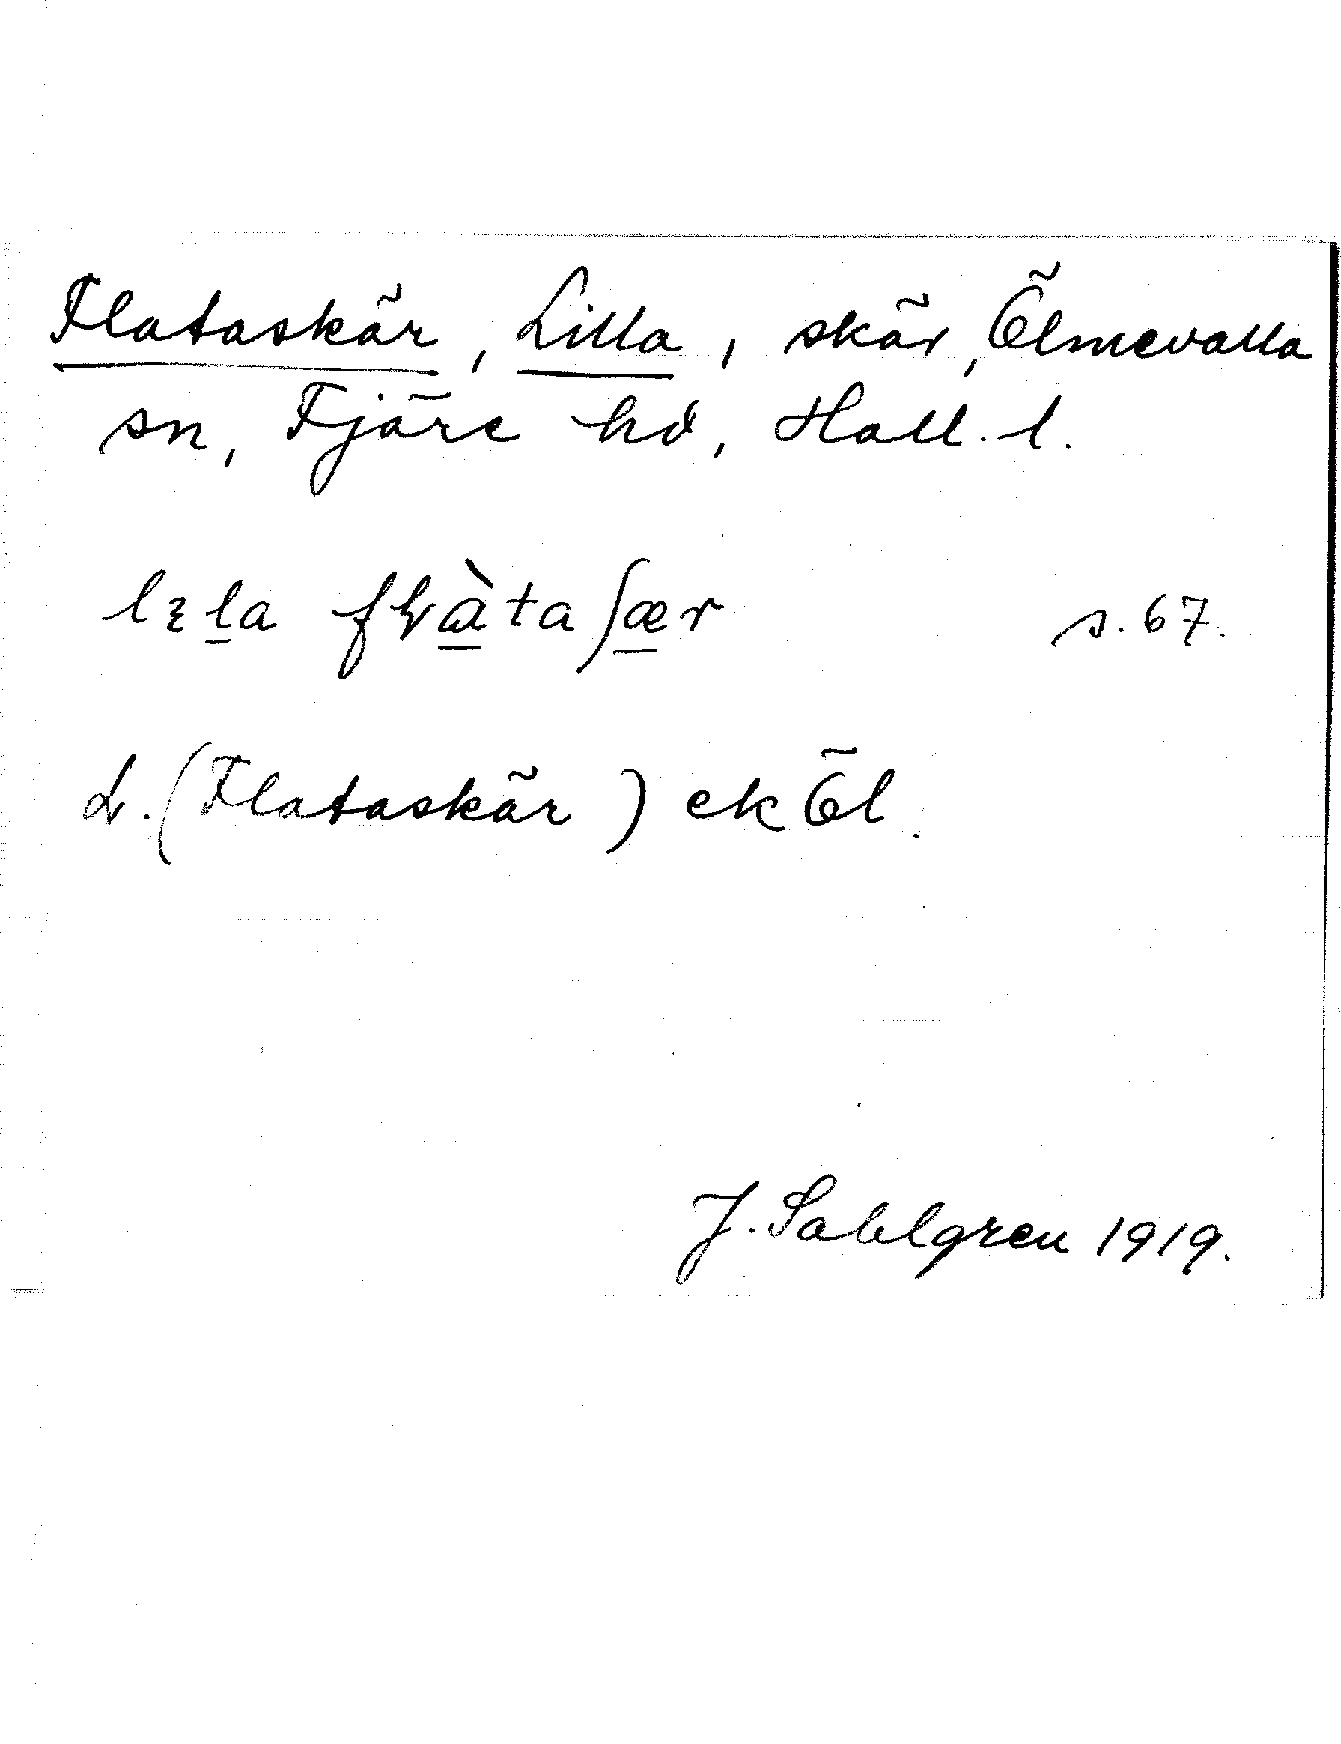 Flataskär, Lilla, skär, Ölmevalla
sn, Fjäre hd, Hall. l.
lɪla fɽàtaʃær s. 67.
L. (Flataskär) ek Öl.
J. Sahlgren 1919.